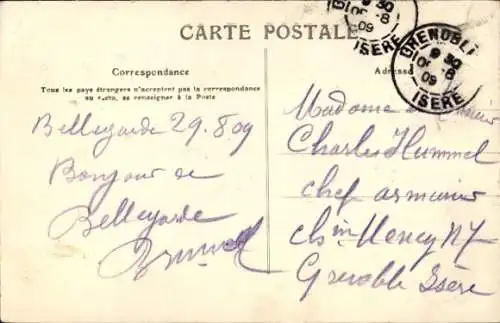 CARTE POSTALE
Correspondance
Tous les pays étrangers n'acceptent pas la correspondance
au recto, se renseigner à la Poste
Bellegarde 29.8.09
Bonjour de
Bellegarde
Adresse
Madame
Charles Hummel
chef armurier
Grenoble Isère
9 30
8
09
ISERE
GRENOBLE
9 30
8
09
ISERE